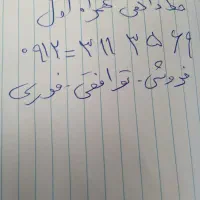 خط دائمی همراه اول
۰۹۱۲ = ۳۱۱ ۳۵ ۶۹
فروشی - توافقی - فوری